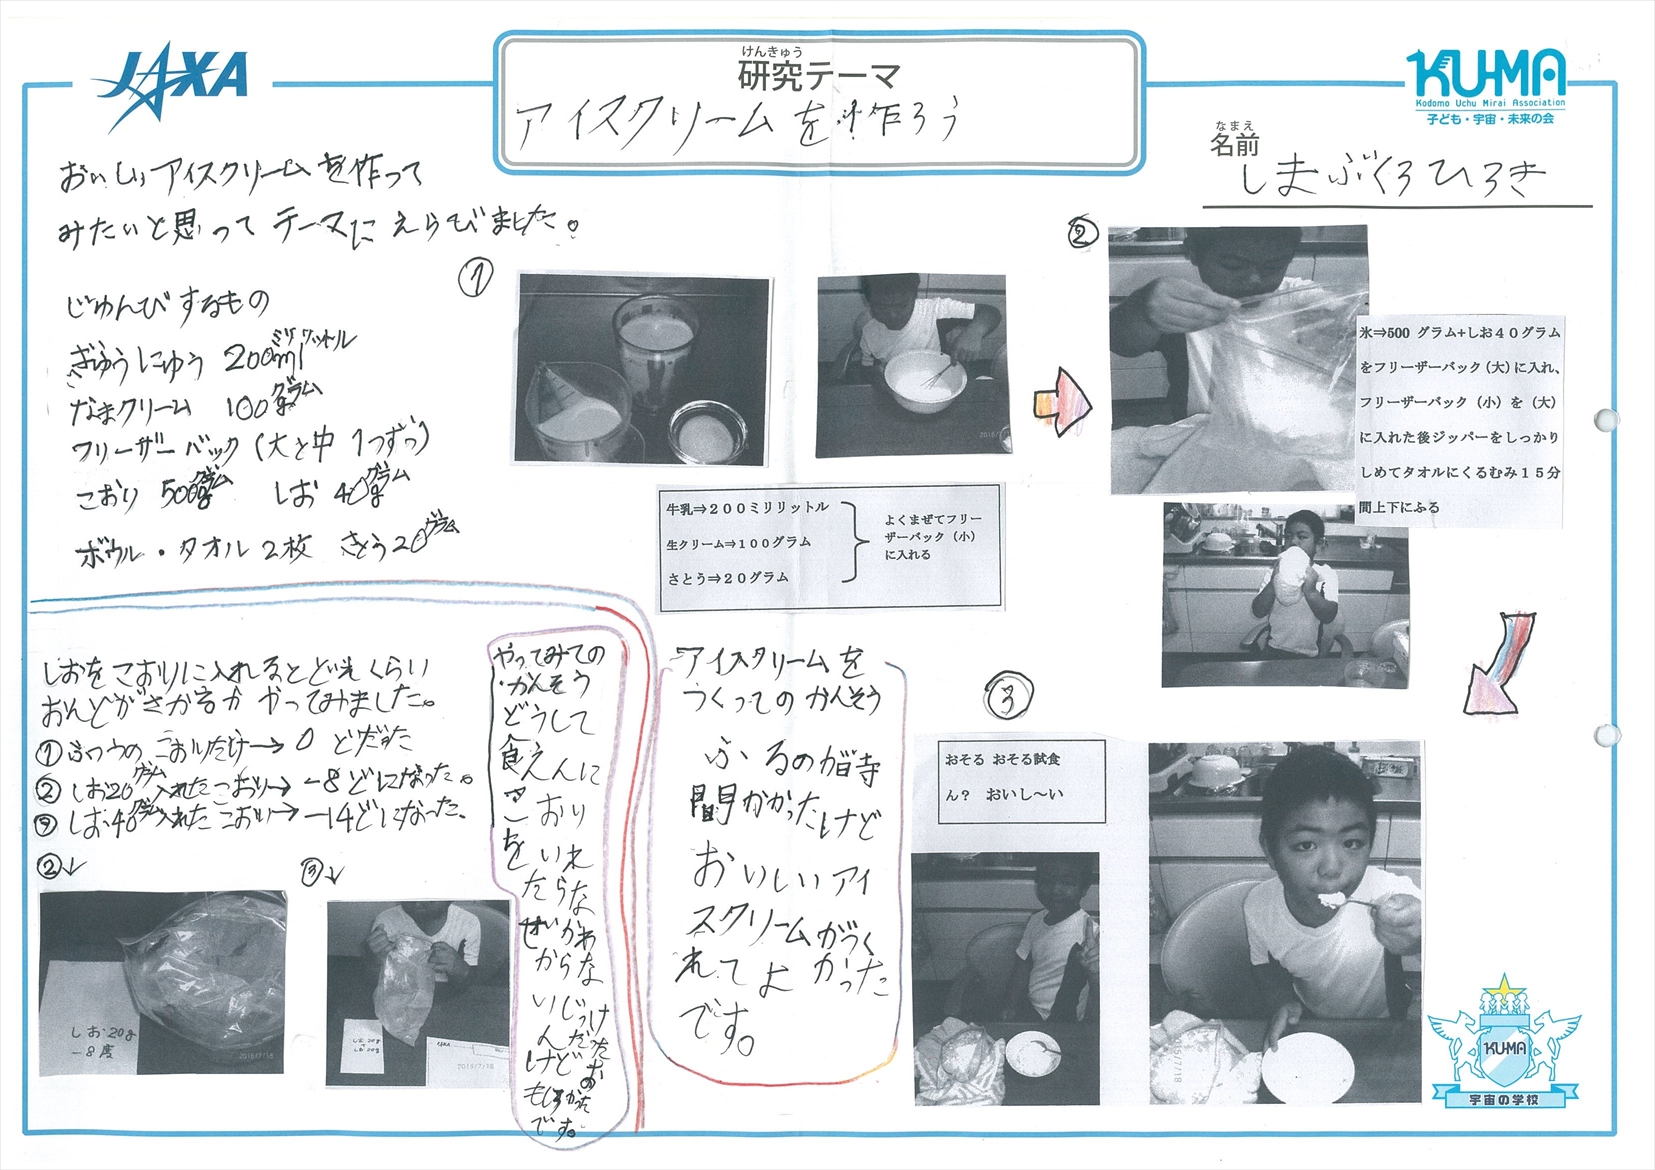 JAXA
けんきゅう
研究テーマ
アイスクリームを作ろう
KU-MA
Kodomo Uchu Mirai Association
子ども・宇宙・未来の会
なまえ
名前
しまぶくろひろき
おいしいアイスクリームを作って
みたいと思ってテーマにえらびました。
じゅんびするもの
ぎゅうにゅう 200ml ミリリットル
なまクリーム 100g グラム
フリーザーバック(大と中 1つずつ)
こおり 500g グラム しお 40g グラム
ボウル・タオル2枚 さとう20 グラム
①
牛乳⇒200ミリリットル
生クリーム⇒100グラム
さとう⇒20グラム
よくまぜてフリー
ザーバック(小)
に入れる
②
氷⇒500 グラム+しお40グラム
をフリーザーバック(大)に入れ、
フリーザーバック(小)を(大)
に入れた後ジッパーをしっかり
しめてタオルにくるむみ15分
間上下にふる
③
おそる おそる試食
ん? おいし～い
しおをこおりに入れるとどれくらい
おんどがさがるか やってみました。
①ふつうのこおりだけ→0どだった
②しお20グラム入れたこおり→-8どになった。
③しお40グラム入れたこおり→-14どになった。
②↓
③↓
しお20g
-8度
しお20g
しお20g
2015/7/18
やってみての
かんそう
どうして
アイスクリームを
つくってのかんそう
ふるのが時
間かかったけど
おいしいアイ
スクリームがつく
れてよかった
です。
KU-MA
宇宙の学校